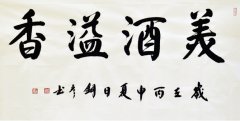 美酒溢香
歲在丙申夏日劍
書